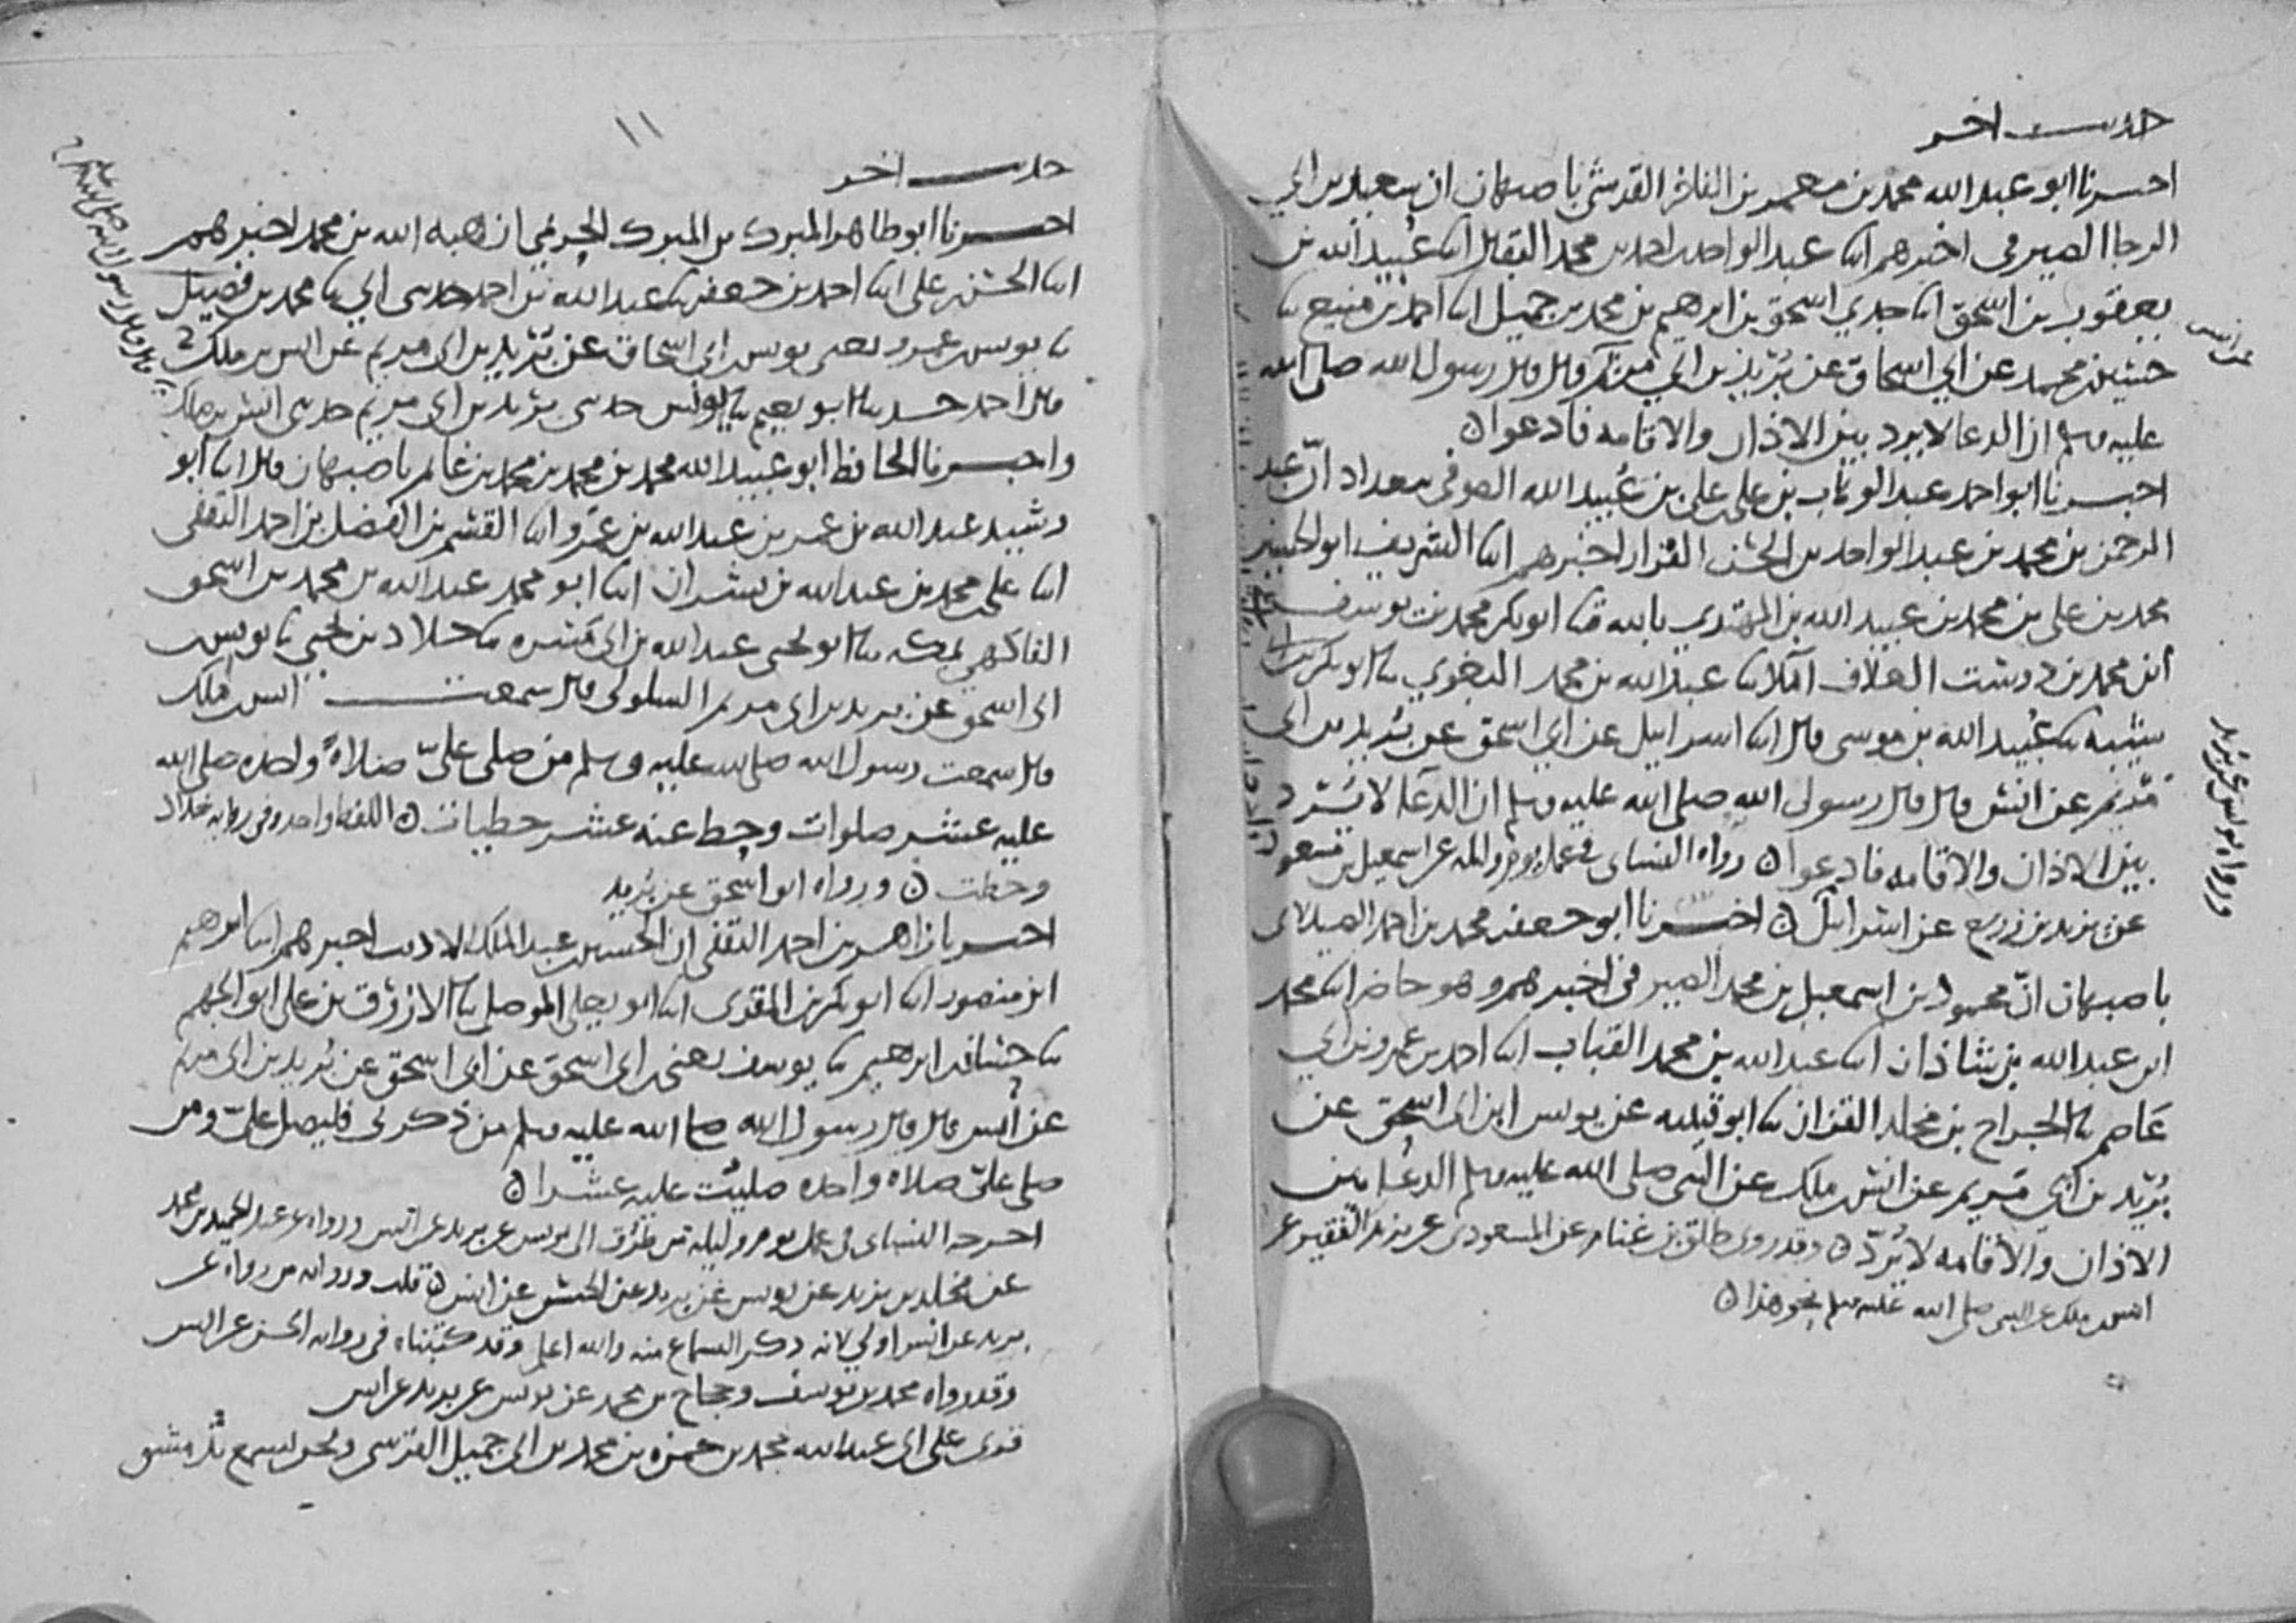 حديث اخر
اخبرنا ابو عبد الله محمد بن معمر بن الفاخر القرشي باصبهان ان سعيد بن ابي
الرجا الصيرفي اخبرهم ابنا عبد الواحد بن احمد بن محمد البقال ابنا عبيد الله بن
يعقوب بن اسحق ابنا جدي اسحق بن ابرهيم بن محمد بن جميل ابنا احمد بن منيع ثنا
حسين بن محمد عن ابي اسحاق عن بريد بن ابي مريم قال قال رسول الله صلى الله
عليه وسلم ان الدعا لا يرد بين الاذان والاقامه فادعوا ن
اخبرنا ابو احمد عبد الوهاب بن علي بن علي بن عبيد الله الصوفي ببغداد ان عبد
الرحمن بن محمد بن عبد الواحد بن الحسن القزاز اخبرهم ابنا الشريف ابو الحسين
محمد بن علي بن محمد بن عبيد الله بن المهتدي بالله ثنا ابو بكر محمد بن يوسف
ابن محمد بن دوست العلاف املا ثنا عبد الله بن محمد البغوي ثنا ابو بكر بن ابي
شيبه ثنا عبيد الله بن موسى قال ابنا اسرائيل عن ابي اسحق عن بريد بن ابي
مريم عن انس قال قال رسول الله صلى الله عليه وسلم ان الدعا لا يرد
بين الاذان والاقامه فادعوا ن رواه النسائي في عمل يوم وليله عن اسمعيل بن مسعود
عن يزيد بن زريع عن اسرائل ن اخبرنا ابو جعفر محمد بن احمد الصيدلاني
باصبهان ان محمود بن اسمعيل بن محمد الصيرفي اخبرهم وهو حاضر ابنا محمد
ابن عبد الله بن شاذان ابنا عبد الله بن محمد القباب ابنا احمد بن عمرو بن ابي
عاصم ثنا الجراح بن مخلد القزاز ثنا ابو قتيبه عن يونس ابن ابي اسحق عن
بريد بن ابي مريم عن انس بن ملك عن النبي صلى الله عليه وسلم الدعا بين
الاذان والاقامه لا يرد ن وقد روى طلق بن غنام عن المسعودي عن يزيد الفقير عن
انس بن ملك عن النبي صلى الله عليه وسلم بنحو هذا ن
عن انس
ورواه يونس عن بريد
١١
حديث اخر
اخبرنا ابو طاهر المبرك بن المبرك الحريمي ان هبه الله بن محمد اخبرهم
ابنا الحسن بن علي ابنا احمد بن جعفر ثنا عبد الله بن احمد حدثني ابي ثنا محمد بن فضيل
ثنا يونس بن عمرو يعني يونس بن ابي اسحاق عن بريد بن ابي مريم عن انس بن ملك
قال احمد حدثنا ابو نعيم ثنا يونس حدثني بريد بن ابي مريم حدثني انس بن ملك
واخبرنا الحافظ ابو عبيد الله محمد بن محمد بن محمد بن غانم باصبهان قال ابنا ابو
رشيد عبد الله بن عمر بن عبد الله بن عمرو ابنا القسم بن الفضل بن احمد الثقفي
ابنا علي بن محمد بن عبد الله بن بشران ابنا ابو محمد عبد الله بن محمد بن اسحق
الفاكهي بمكه ثنا ابو يحيى عبد الله بن ابي مسره ثنا خلاد بن يحيى ثنا يونس بن
ابي اسحق عن بريد بن ابي مريم السلولي قال سمعت انس بن ملك
قال سمعت رسول الله صلى الله عليه وسلم من صلى علي صلاة واحده صلى الله
عليه عشر صلوات وحط عنه عشر خطيات ن اللفظ واحد وفي روايه خلاد
وحطت ن ورواه ابو اسحق عن بريد
اخبرنا زاهر بن احمد الثقفي ان الحسين بن عبد الملك الاديب اخبرهم ابنا ابرهيم
ابن منصور ابنا ابو بكر بن المقري ابنا ابو يعلى الموصلي ثنا الازرق بن علي ابو الجهم
ثنا حسان بن ابرهيم ثنا يوسف يعني بن ابي اسحق عن ابي اسحق عن بريد بن ابي مريم
عن انس قال قال رسول الله صلى الله عليه وسلم من ذكرني فليصل علي ومن
صلى علي صلاه واحده صليت عليه عشرا ن
اخرجه النسائي في عمل يوم وليله من طرق الى يونس عن بريد عن انس ورواه عن عبد الحميد بن محمد
عن مخلد بن يزيد عن يونس عن بريد عن الحسن عن انس ن قلت وروايه من رواه عن
بريد عن انس اولى لانه ذكر السماع منه والله اعلم وقد كتبناه في روايه الحسن عن انس
وقد رواه محمد بن يوسف وحجاج بن محمد عن يونس عن بريد عن انس
قرئ على ابي عبد الله محمد بن حمزه بن محمد بن ابي جميل القرشي ونحن نسمع بدمشق
قال قال رسول الله صلى الله عليه وسلم